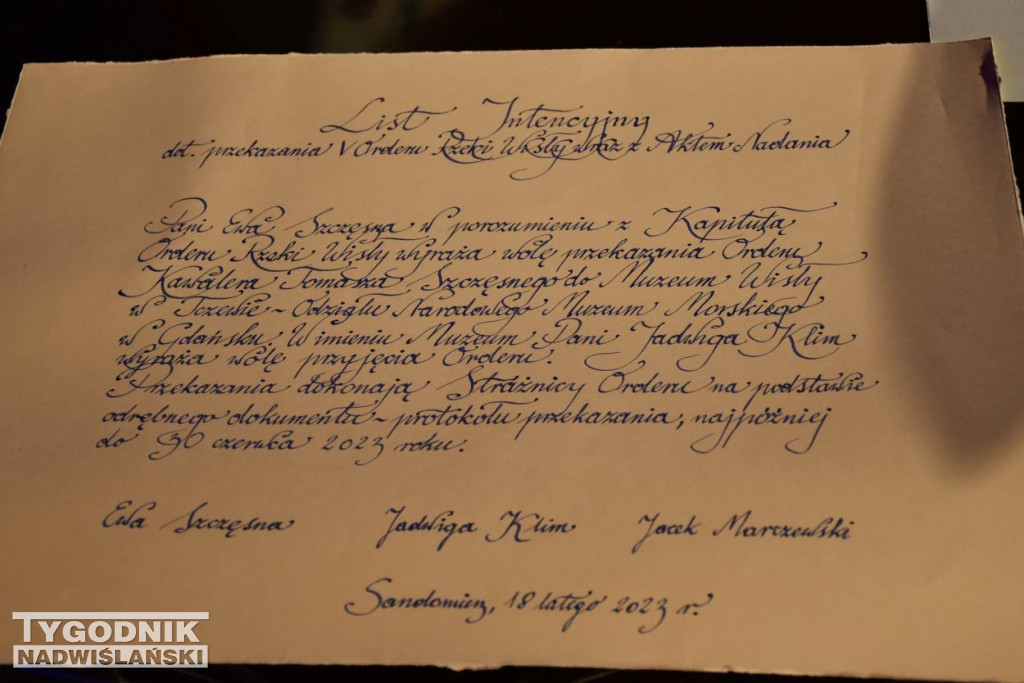 List Intencyjny
dot. przekazania V Orderu Rzeki Wisły wraz z Aktem Nadania
Pani Ewa Szczęsna w porozumieniu z Kapitułą
Orderu Rzeki Wisły wyraża wolę przekazania Orderu
Kawalera Tomasza Szczęsnego do Muzeum Wisły
w Tczewie - Oddziału Narodowego Muzeum Morskiego
w Gdańsku. W imieniu Muzeum Pani Jadwiga Klim
wyraża wolę przyjęcia Orderu.
Przekazania dokonają Strażnicy Orderu na podstawie
odrębnego dokumentu - protokołu przekazania, najpóźniej
do 30 czerwca 2023 roku.
Ewa Szczęsna Jadwiga Klim Jacek Marczewski
Sandomierz, 18 lutego 2023 r.
TYGODNIK
NADWIŚLAŃSKI